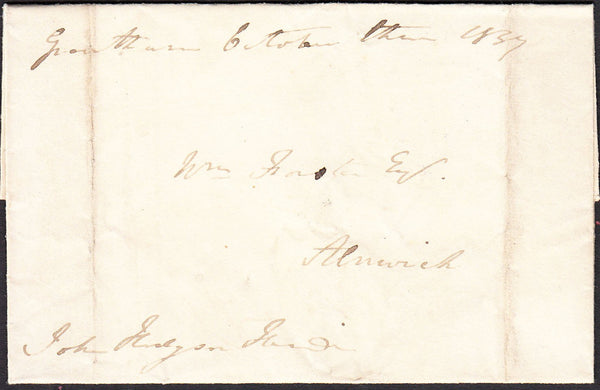 Grantham October three 1837
Wm Forster Esq.
Alnwick
John Hodgson Hinde